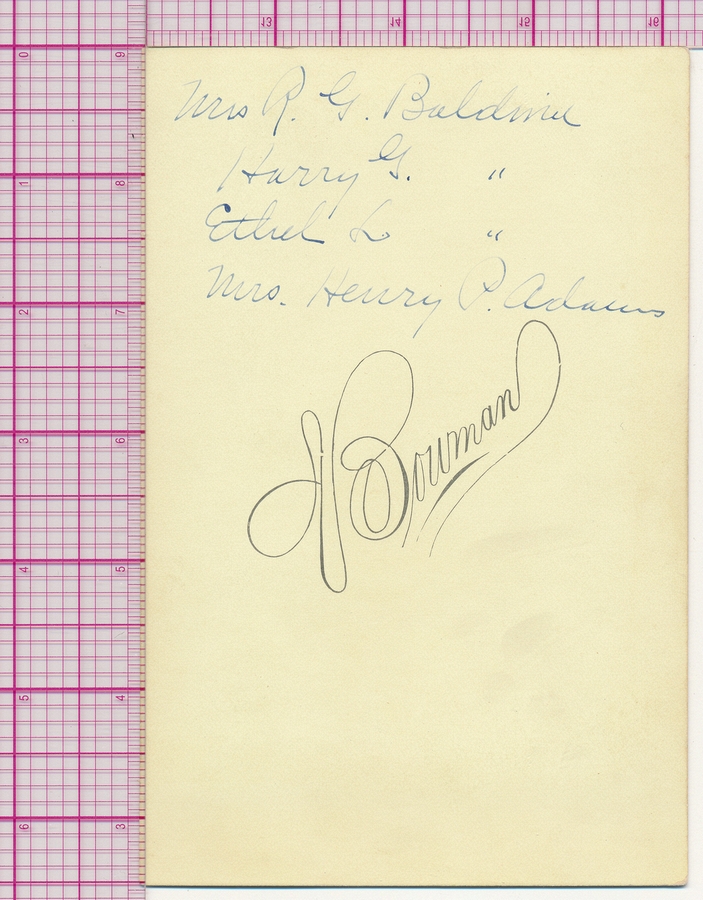 13 14 15 16
0 9
Mrs R. G. Baldwin
Harry G. "
1 8
Ethel L "
Mrs. Henry P. Adams
2 7
Bowman
3 6
4 5
5 4
6 3